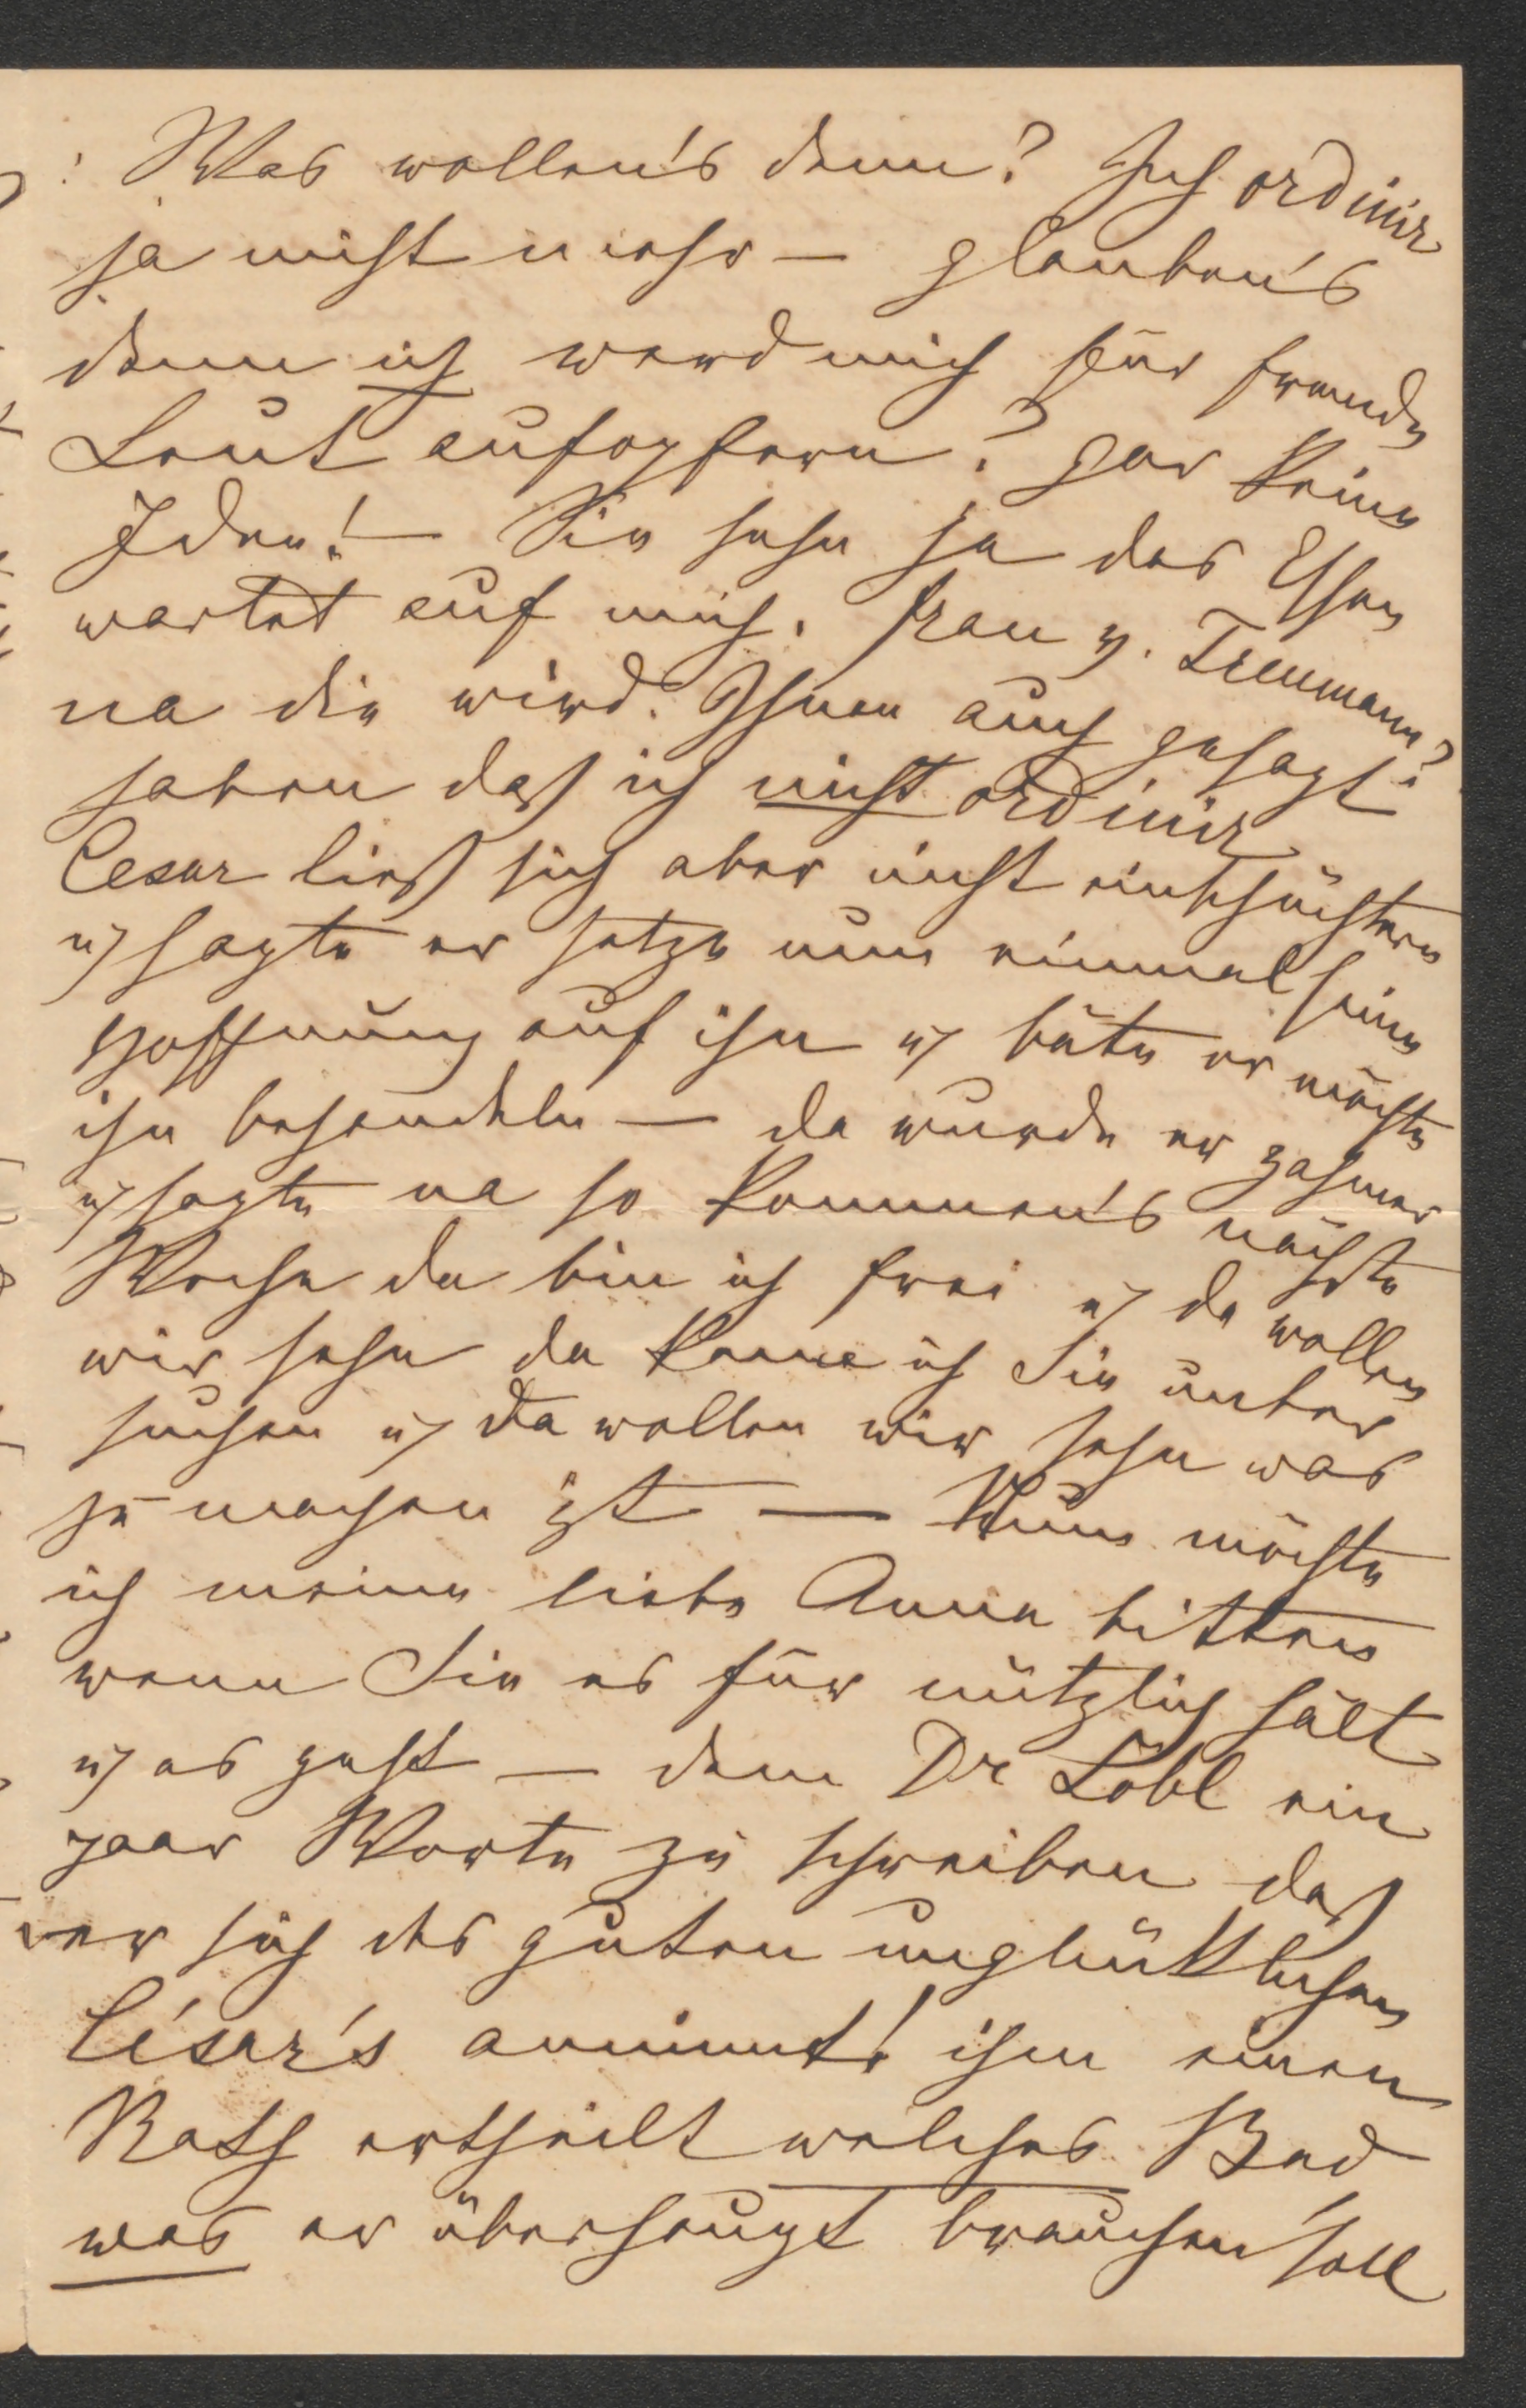 : Was wollen's denn? Ich ordinir
ja nicht mehr — glauben's
denn ich werd mich für fremde
Leut aufopfern? gar keine
Idee! — Sie sehn ja das Essen
wartet auf mich. Frau v. Treumann?
na die wird Ihnen auch gesagt
haben daß ich nicht ordinir
Cesar ließ sich aber nicht einschüchtern
u sagte er setze nun einmal seine
Hoffnung auf ihn u bäte er möchte
ihn behandeln — da wurde er zahmer
u sagte na so kommen's nächste
Woche da bin ich frei u da wollen
wir sehn da kann ich Sie unter
suchen u da wollen wir sehn was
zu machen ist — Nun möchte
ich meine liebe Anna bitten
wenn Sie es für nützlich hält
u es geht — dem Dr Löbl ein
paar Worte zu schreiben daß
er sich des guten unglücklichen
César's annimmt! ihm einen
Rath ertheilt welches Bad
was er überhaupt brauchen soll